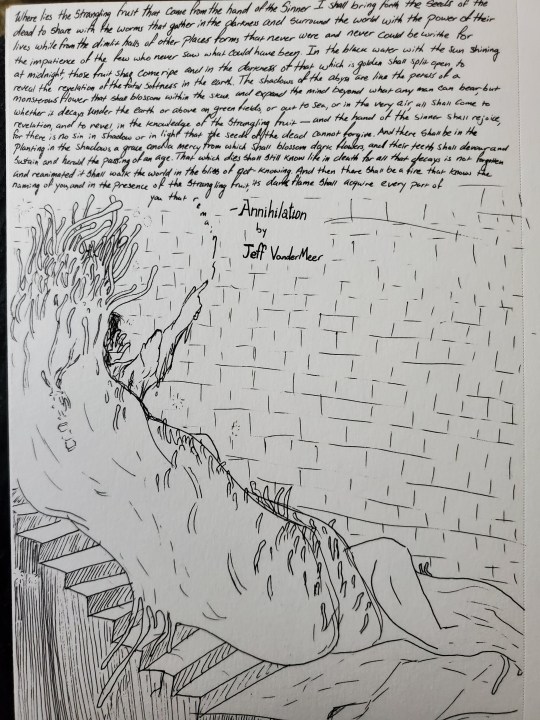 Where lies the Strangling fruit that Came from the hand of the Sinner I shall bring forth the Seeds of the
dead to share with the worms that gather in the darkness and Surround the world with the power of their
lives while from the dimlit halls of other Places forms that never were and never could be writhe for
the impatience of the few who never saw what could have been. In the black water with the Sun Shining
at midnight, those fruit shall come ripe and in the darkness of that which is golden shall split open to
reveal the revelation of the fatal Softness in the earth. The shadows of the abyss are like the petals of a
monstrous flower that shall blossom within the skull and expand the mind beyond what any man can bear but
whether it decays under the Earth or above on green fields, or out to sea, or in the very air, all shall come to
revelation, and to revel, in the knowledge of the Strangling fruit — and the hand of the Sinner shall rejoice,
for there is no sin in shadow or in light that the seeds of the dead cannot forgive. And there shall be in the
Planting in the Shadows a grace and a mercy from which Shall blossom dark flowers, and their teeth shall devour and
Sustain and herald the passing of an age. That which dies shall still know life in death for all that decays is not forgotten
and reanimated it Shall walk the world in the bliss of not-knowing. And then there shall be a fire that knows the
naming of you, and in the presence of the Strangling fruit, its dark flame shall acquire every part of
you that remains
-Annihilation
by
Jeff VanderMeer